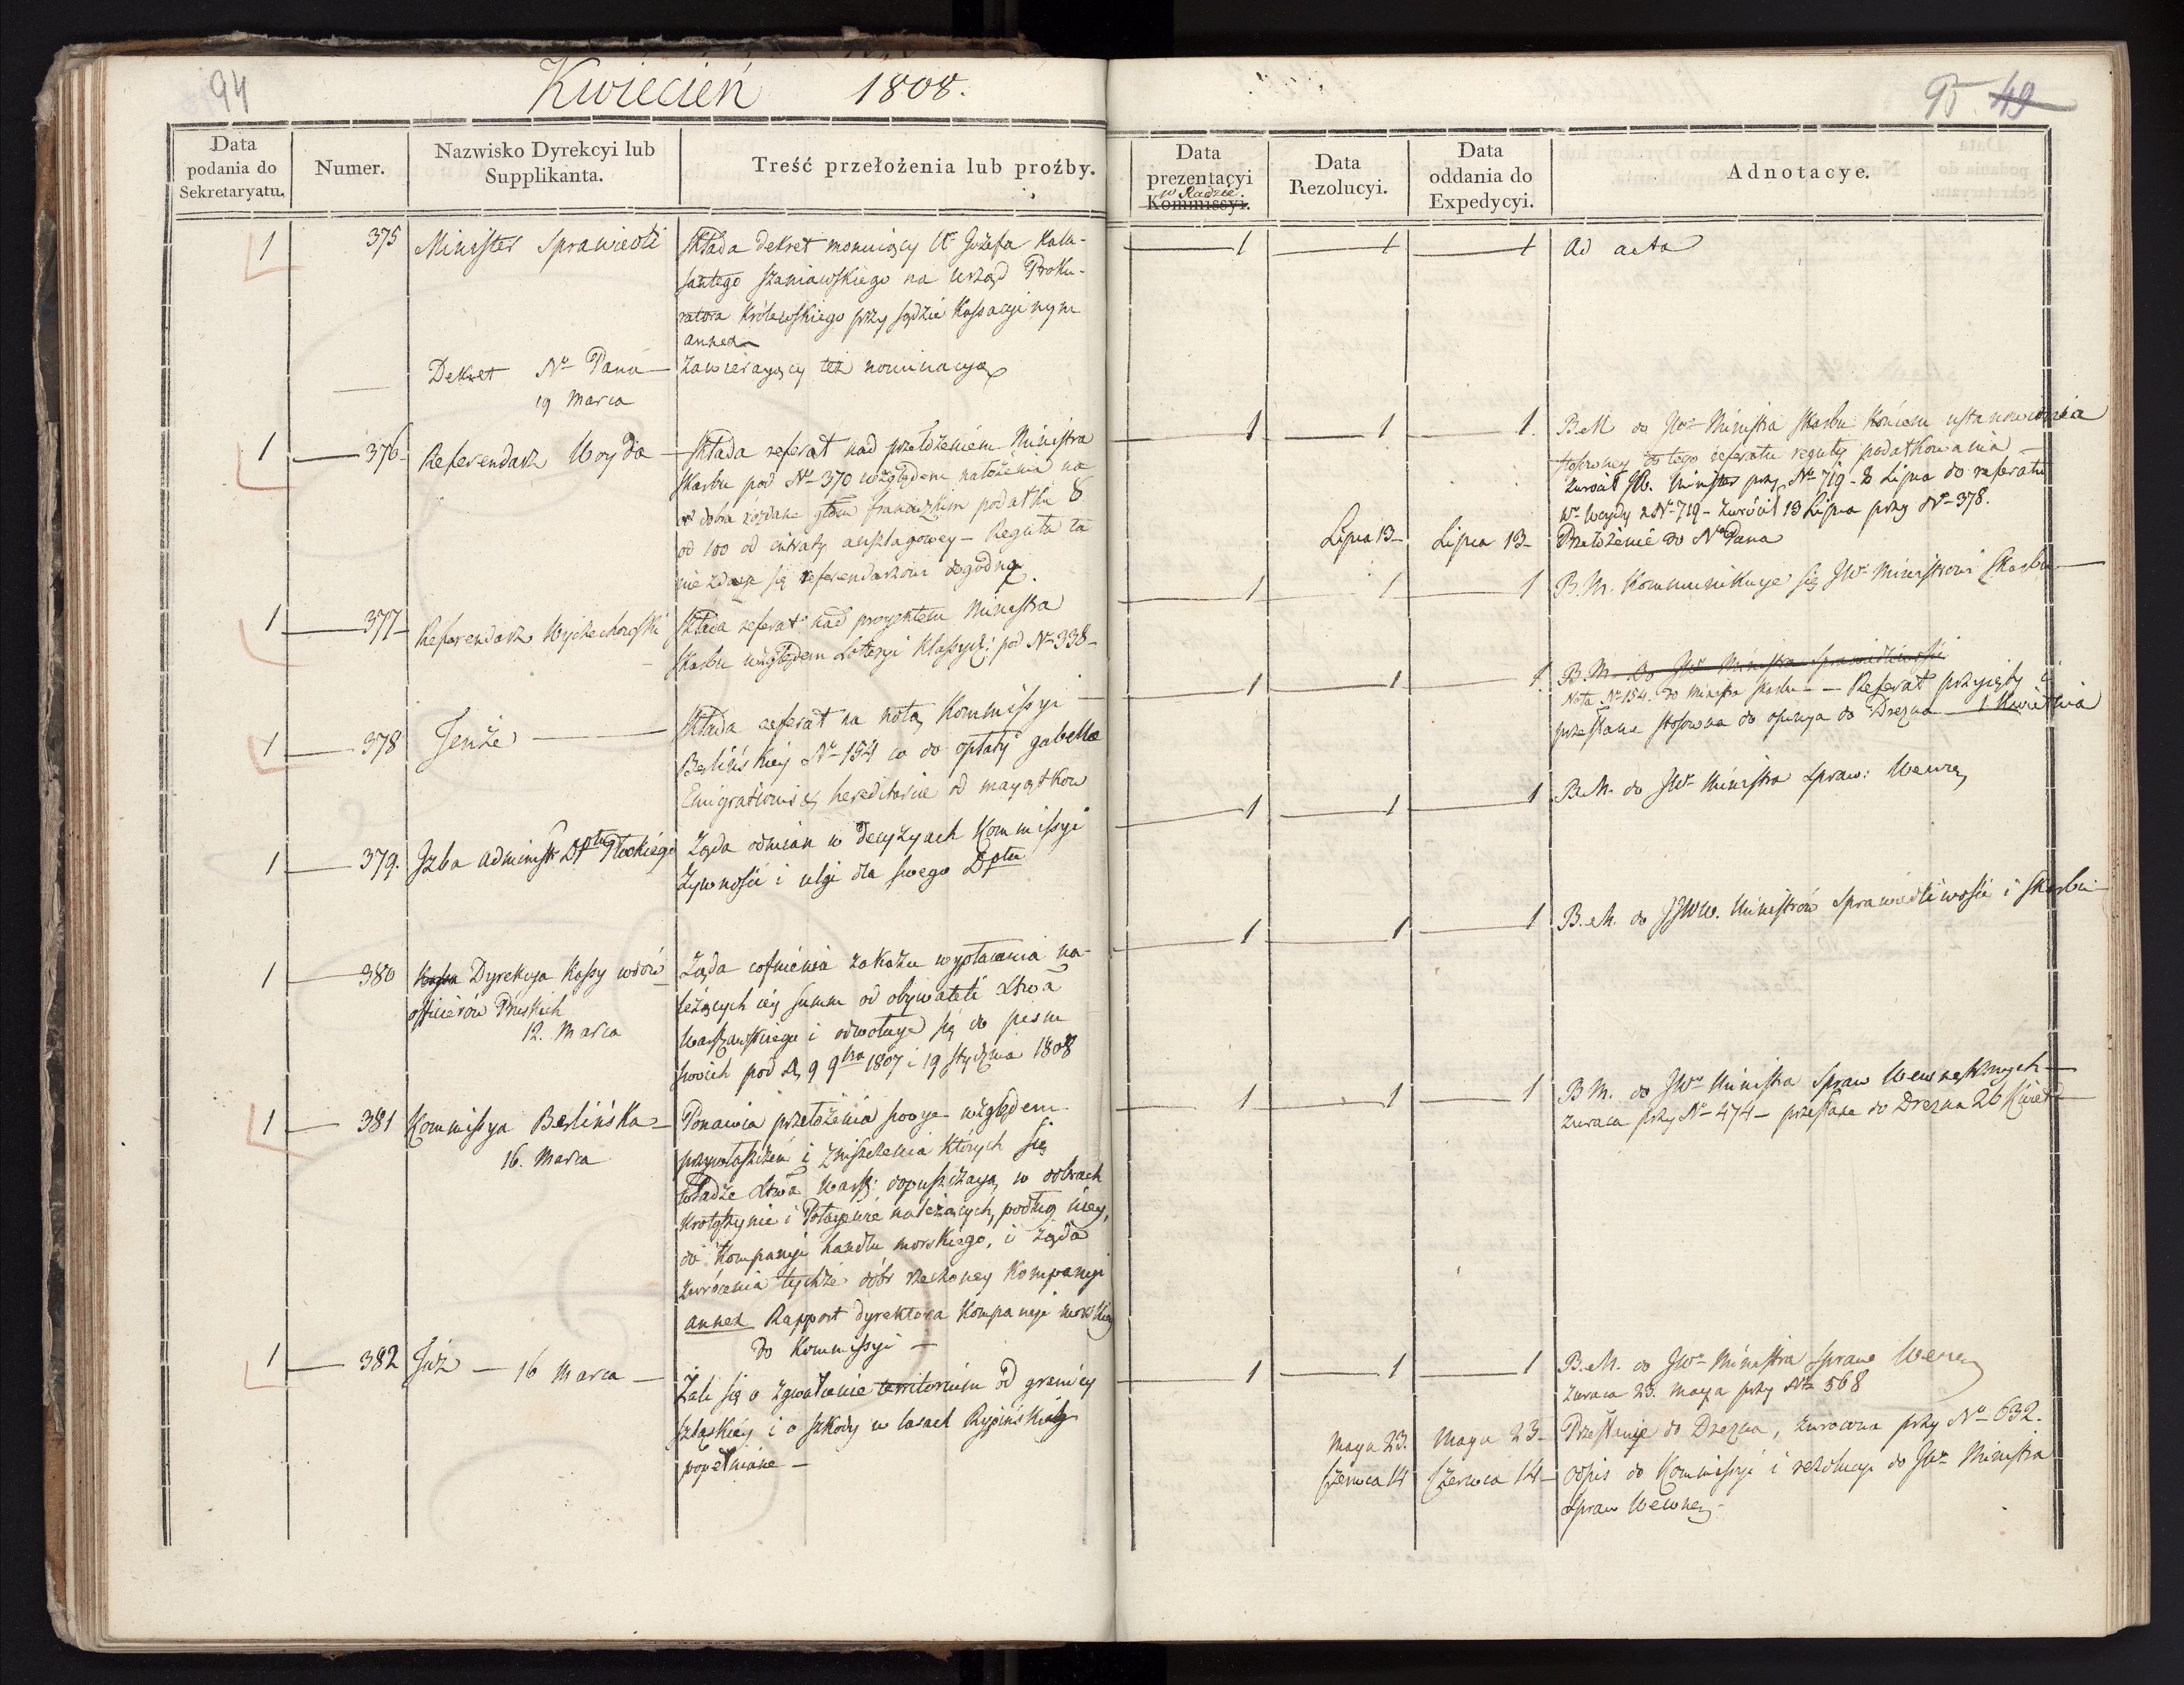 94
Kwiecień 1808.
Data podania do Sekretaryatu.
Numer.
Nazwisko Dyrekcyi lub Supplikanta.
Treść przełożenia lub proźby.
1 375 Minister Sprawiedli
Składa dekret mianuiący W. Józefa Kala-
santego Szaniawskiego na Urząd Proku-
ratora Królewskiego przy sądzie Kassacyinym
annex
Dekret No Pana
19 Marca
zawieraiący też nominacyą
1 376 Referendarz Woyda
Składa referat nad przełożeniem Ministra
Skarbu pod No 370 względem nałożenia na
dobra rozdane francuzkim podatku 8
od 100 od intraty anszlagowey – Reguła ta
nie zdaie się referendarzowi dogodną.
1 377 Referendarz Wyczechowski
Składa referat nad proyektem Ministra
Skarbu względem Loteryi Klassycz: pod No 338
1 378 Tenże
Składa referat na notę Kommissyi
Berlińskiey No 154 co do opłaty gabellae
Emigrationis & hereditariae od maiątkow
1 379. Izba administr Dptu Płockiego
Żąda odmian w decyzyach Kommissyi
Żywności i ulgi dla swego Dptu
1 380 Dyrekcya Kassy wdów
officierów Pruskich
12. Marca
Żąda cofnienia zakazu wypłacania na-
leżących iey summ od obywateli Xtwa
Warszawskiego i odwołuye się do pism
swoich pod d, 9 9bra 1807 i 19 Stycznia 1808
1 381 Kommissya Berlińska
16. Marca
Ponawia przełożenia swoye względem
przywłaszczeń i zniszczenia których się
władze Xtwa Warsz: dopuszczaią w dobrach
Krotoszynie i należących, podług niey,
do Kompanyi handlu morskiego, i żąda
zwrócenia tychże dóbr rzeczoney Kompanyi
annex Rapport dyrektora Kompanyi morskiey
do Kommissyi –
1 382 Taż – 16 Marca
Żali się o zgwałcenie territorium od granicy
szląskiey i o szkody w lasach
popełniane –
95 49
Data prezentacyi w Radzie Kommissyi.
Data Rezolucyi.
Data oddania do Expedycyi.
Adnotacye.
1 1 1 Ad acta
1 1 1. B.M do JW. Ministra Skarbu końcem ustanowienia
stosowney do tego referatu reguły podatkowania –
zwrócił JW. Minister przy No 719 – 2 Lipca do referatu
Wo Woydy z No 719 – zwrócił 13 Lipca przy No 378.
Lipca 13 – Lipca 13 – Przełożenie do No Pana
1 1 1 B.M. Kommunikuye się JWo Ministrowi Skarbu
1 1 1. B.M. do JWo Ministra Sprawiedliwości
Nota No 154. do Ministra Skarbu – Referat przyięty i
przesłane stosowna do opinya do Drezna 1 Kwietnia
1 1 1 B.M. do JWo Ministra Spraw: Wewnę,
1 1 1 B.M. do JJWW. Ministrów Sprawiedliwości i Skarbu
1 1 1 B.M. do JWo Ministra Spraw Wewnętrznych
zwraca przy No 474 – przesłane do Drezna 26 Kwiet
1 1 1 B.M. do JWo Ministra Spraw Wewn
zwraca 23. Maya przy No 568
Maya 23. Maya 23 – Przesłanie do Drezna, zwrócona przy No 632.
Czerwca 14 Czerwca 14 – Odpis do Kommissyi i rezolucya do JWo Ministra
Spraw Wewnę